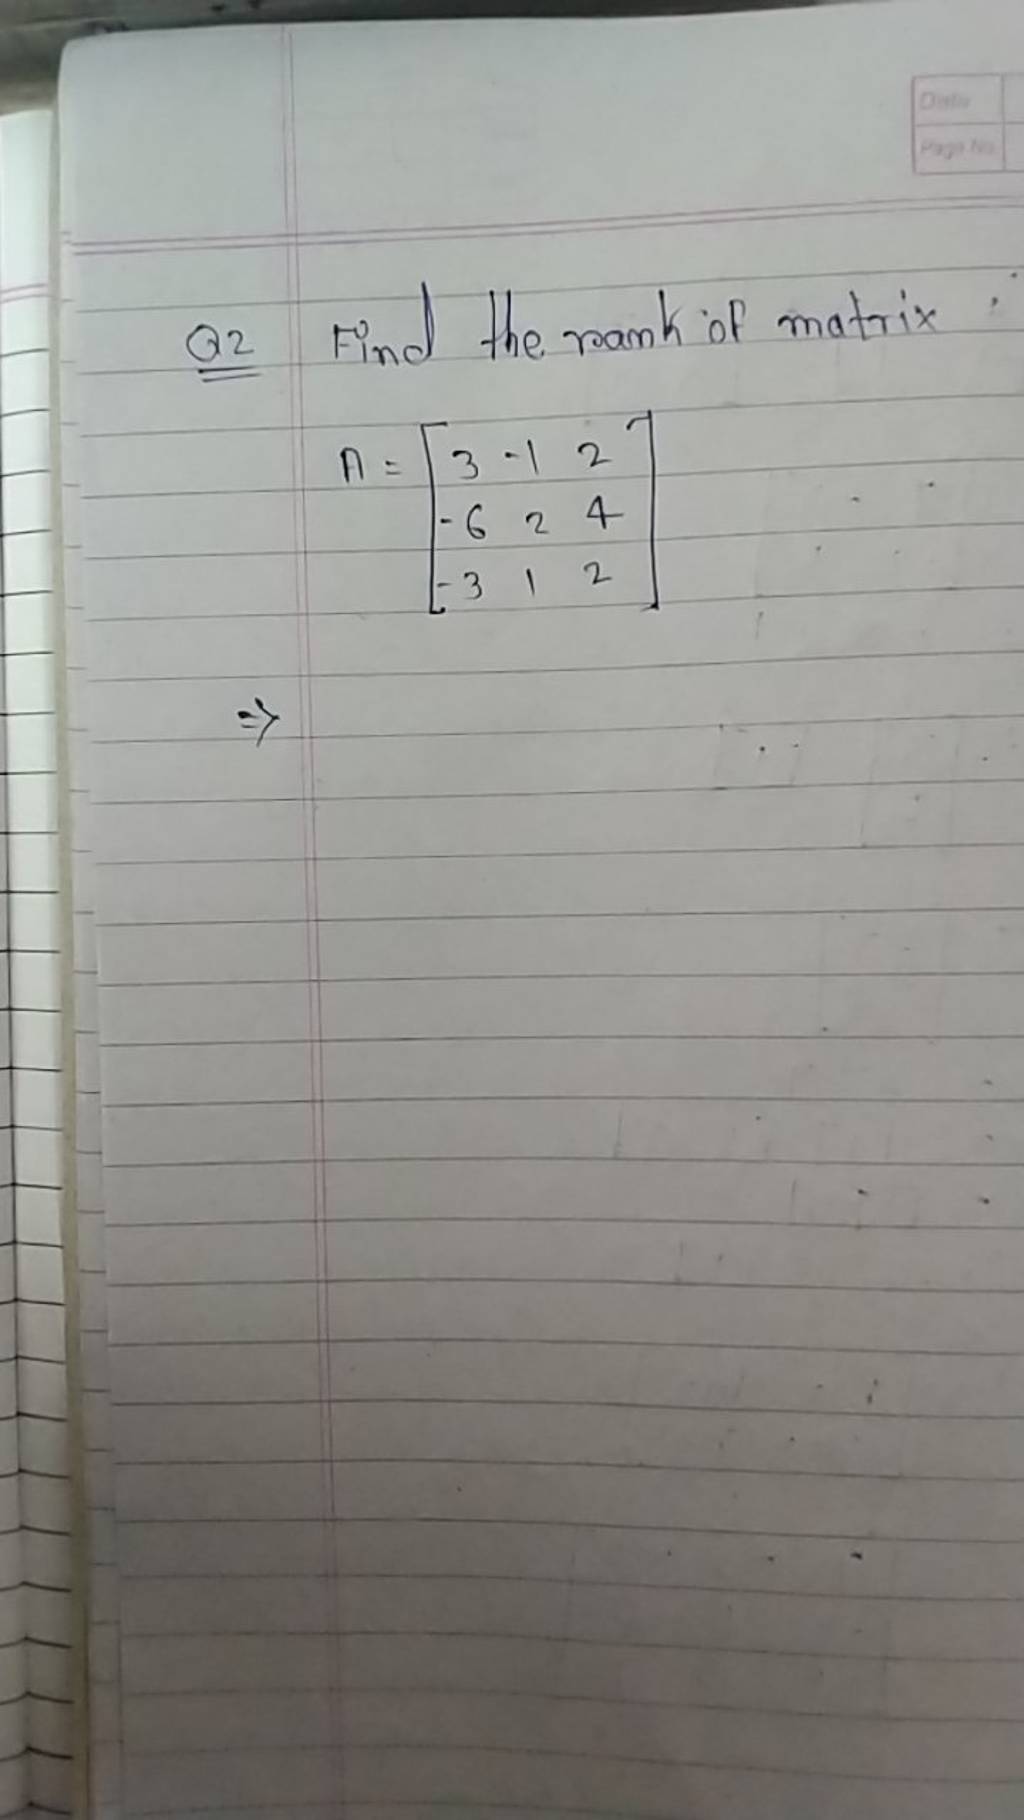 Date
Page No.
Q2 Find the rank of matrix :
A = [3 -1 2
-6 2 4
-3 1 2]
⇒